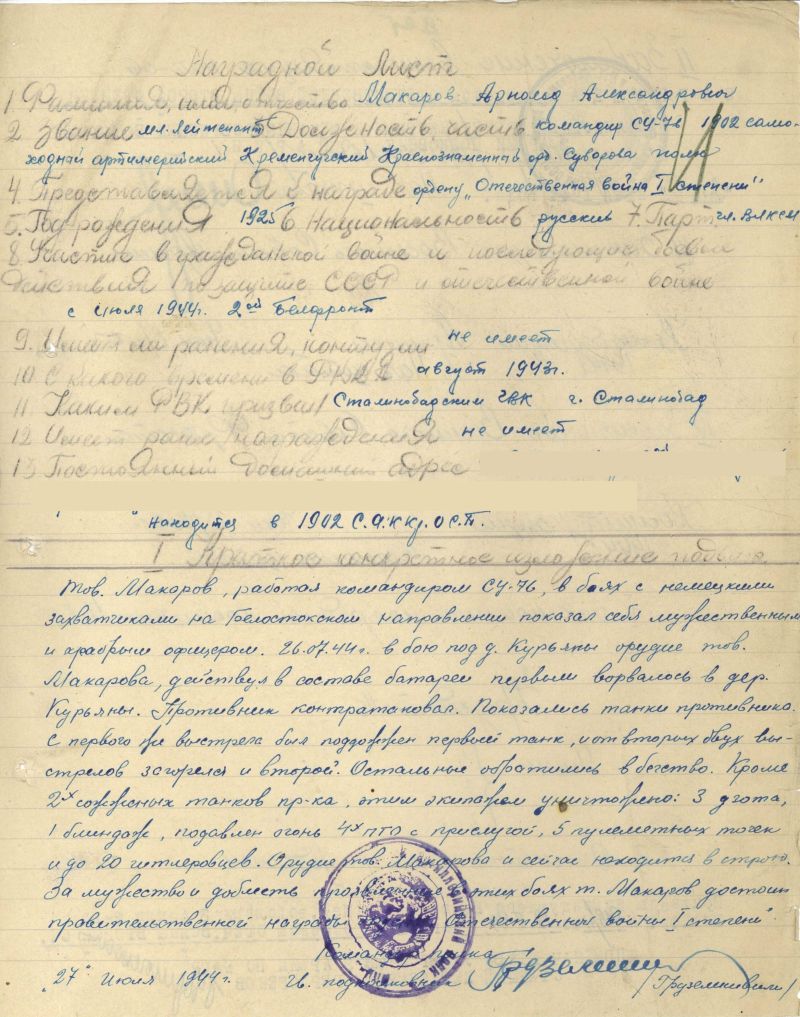 Наградной Лист
1. Фамилия, имя отчество Макаров Арнольд Александрович
2. Звание мл. лейтенант Должность, часть командир СУ-76 1902 само-
ходный артиллерийский Кременчугский Краснознаменный орд. Суворова полк
4. Представляется к награде ордену „Отечественная война I степени"
5. Год рождения 1925 6. Национальность русский 7. Парт. чл. ВЛКСМ
8. Участие в гражданской войне и последующие боевые
действия по защите СССР и отечественной войне
с июля 1944г. 2ой Белфронт
9. Имеет ли ранения, контузии не имеет
10 С какого времени в РККА август 1943г.
11. Каким РВК призван Сталинобадским ГВК г. Сталинобад
12 Имеет ранее награждения не имеет
13 Постоянный домашний адрес
находится в 1902 С.А.ККр.О С.П.
I Краткое конкретное изложение подвига
Тов. Макаров, работая командиром СУ-76, в боях с немецкими
захватчиками на Белостокском направлении показал себя мужественным
и храбрым офицером. 26.07.44г. в бою под д. Курьяны орудие тов.
Макарова, действуя в составе батареи первым ворвалось в дер.
Курьяны. Противник контратаковал. Показались танки противника.
С первого же выстрела был подожжен первый танк, и от вторых двух вы-
стрелов загорелся и второй. Остальные обратились в бегство. Кроме
2х сожженых танков пр-ка, этим экипажем уничтожено: 3 дзота,
1 блиндаж, подавлен огонь 4х ПТО с прислугой, 5 пулеметных точек
и до 20 гитлеровцев. Орудие тов. Макарова и сейчас находится в строю.
За мужество и доблесть в этих боях т. Макаров достоин
правительственной награды Отечественной войны I степени".
Командир полка
„27" июля 1944г. Гв. подполковник /Груземшвили/